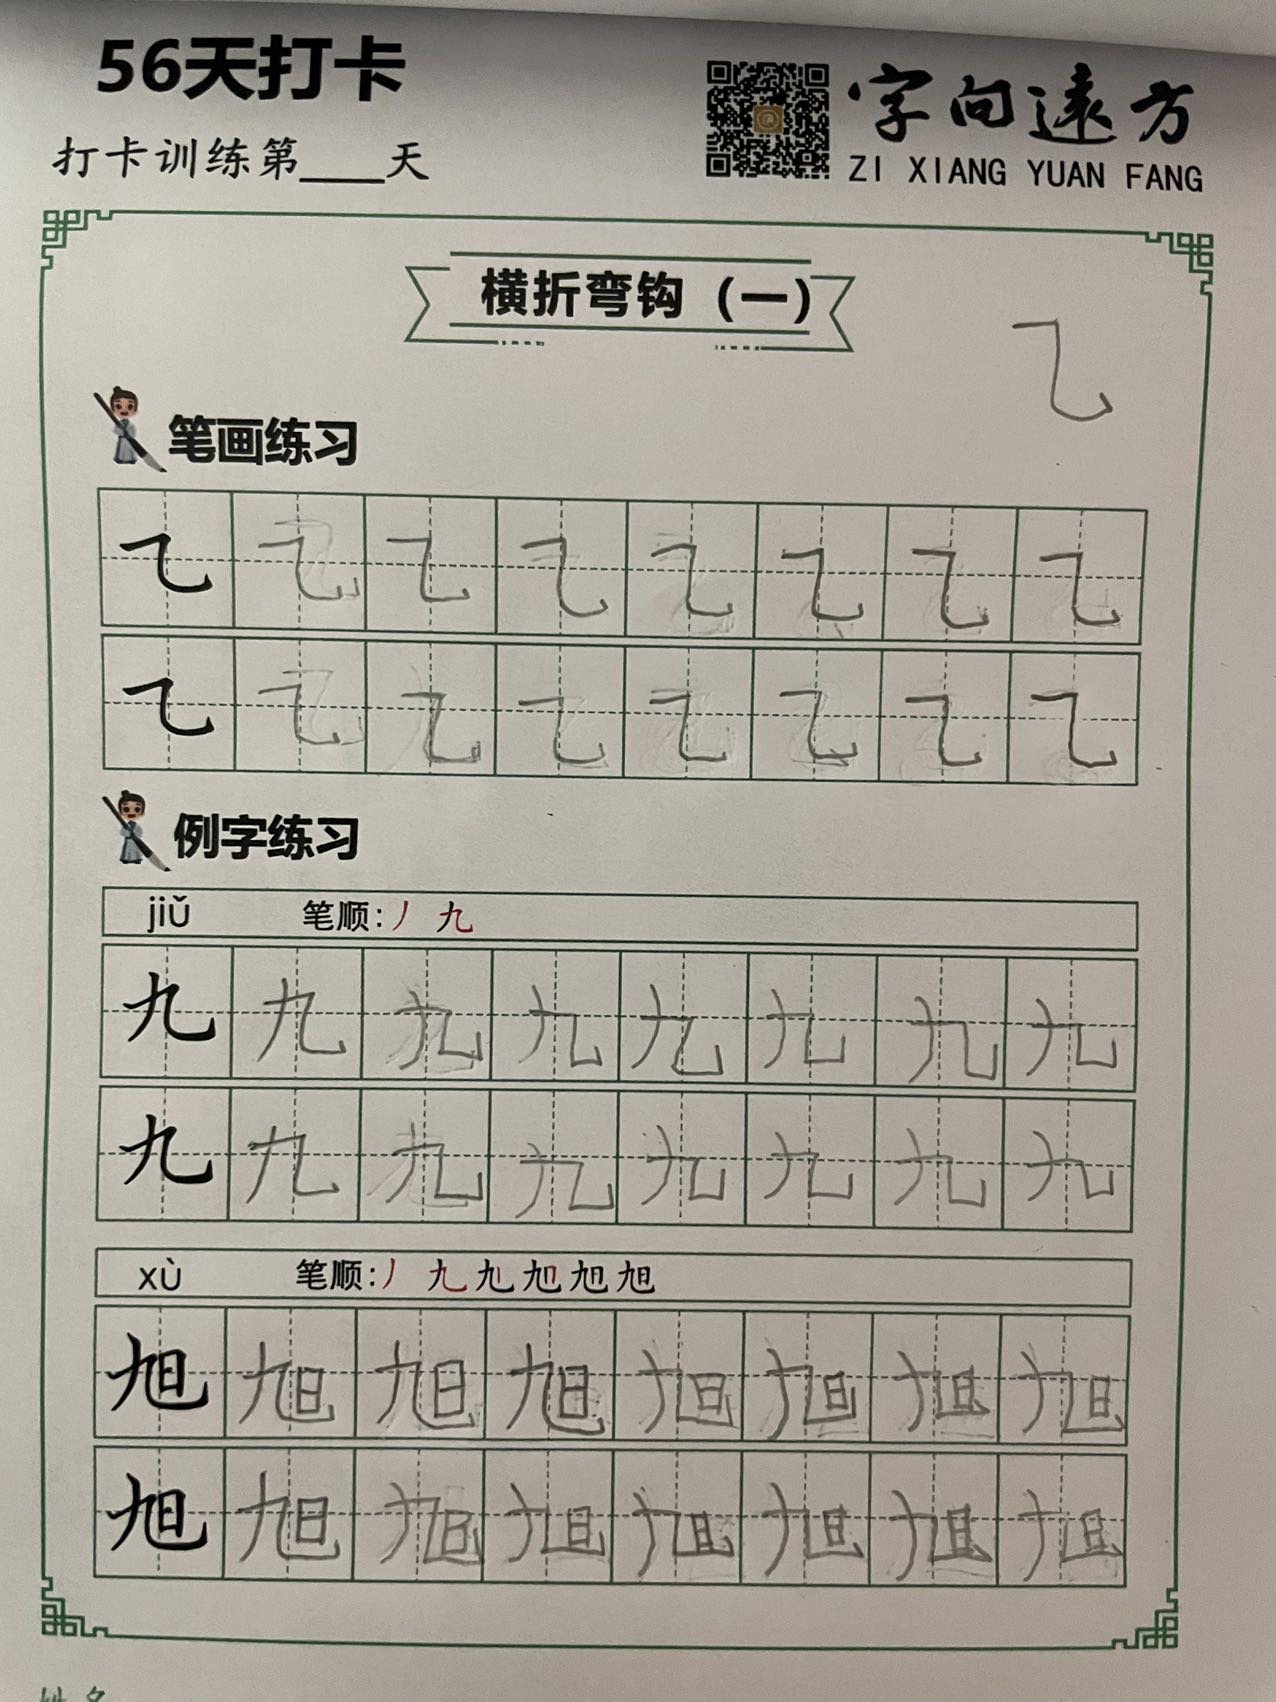 56天打卡
打卡训练第____天
字向远方
ZI XIANG YUAN FANG
横折弯钩（一）
㇈
笔画练习
㇈ ㇈ ㇈ ㇈ ㇈ ㇈ ㇈ ㇈
㇈ ㇈ ㇈ ㇈ ㇈ ㇈ ㇈ ㇈
例字练习
jiǔ 笔顺:丿 九
九 九 九 九 九 九 九 九
九 九 九 九 九 九 九 九
xù 笔顺:丿 九 旭 旭 旭 旭
旭 旭 旭 旭 旭 旭 旭 旭
旭 旭 旭 旭 旭 旭 旭 旭